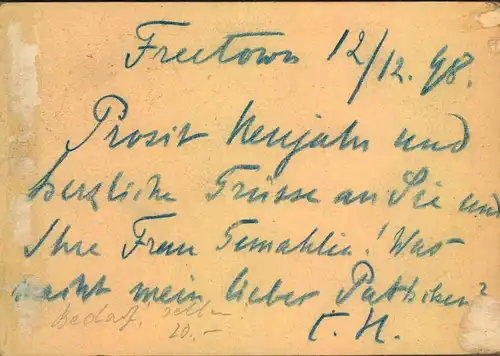 Freetown 12/12.98.
Prosit Neujahr und
herzliche Grüsse an Sie und
Ihre Frau Gemahlin! Was
macht mein lieber Pattchen?
C. H.
Bedarf, selten
20.-